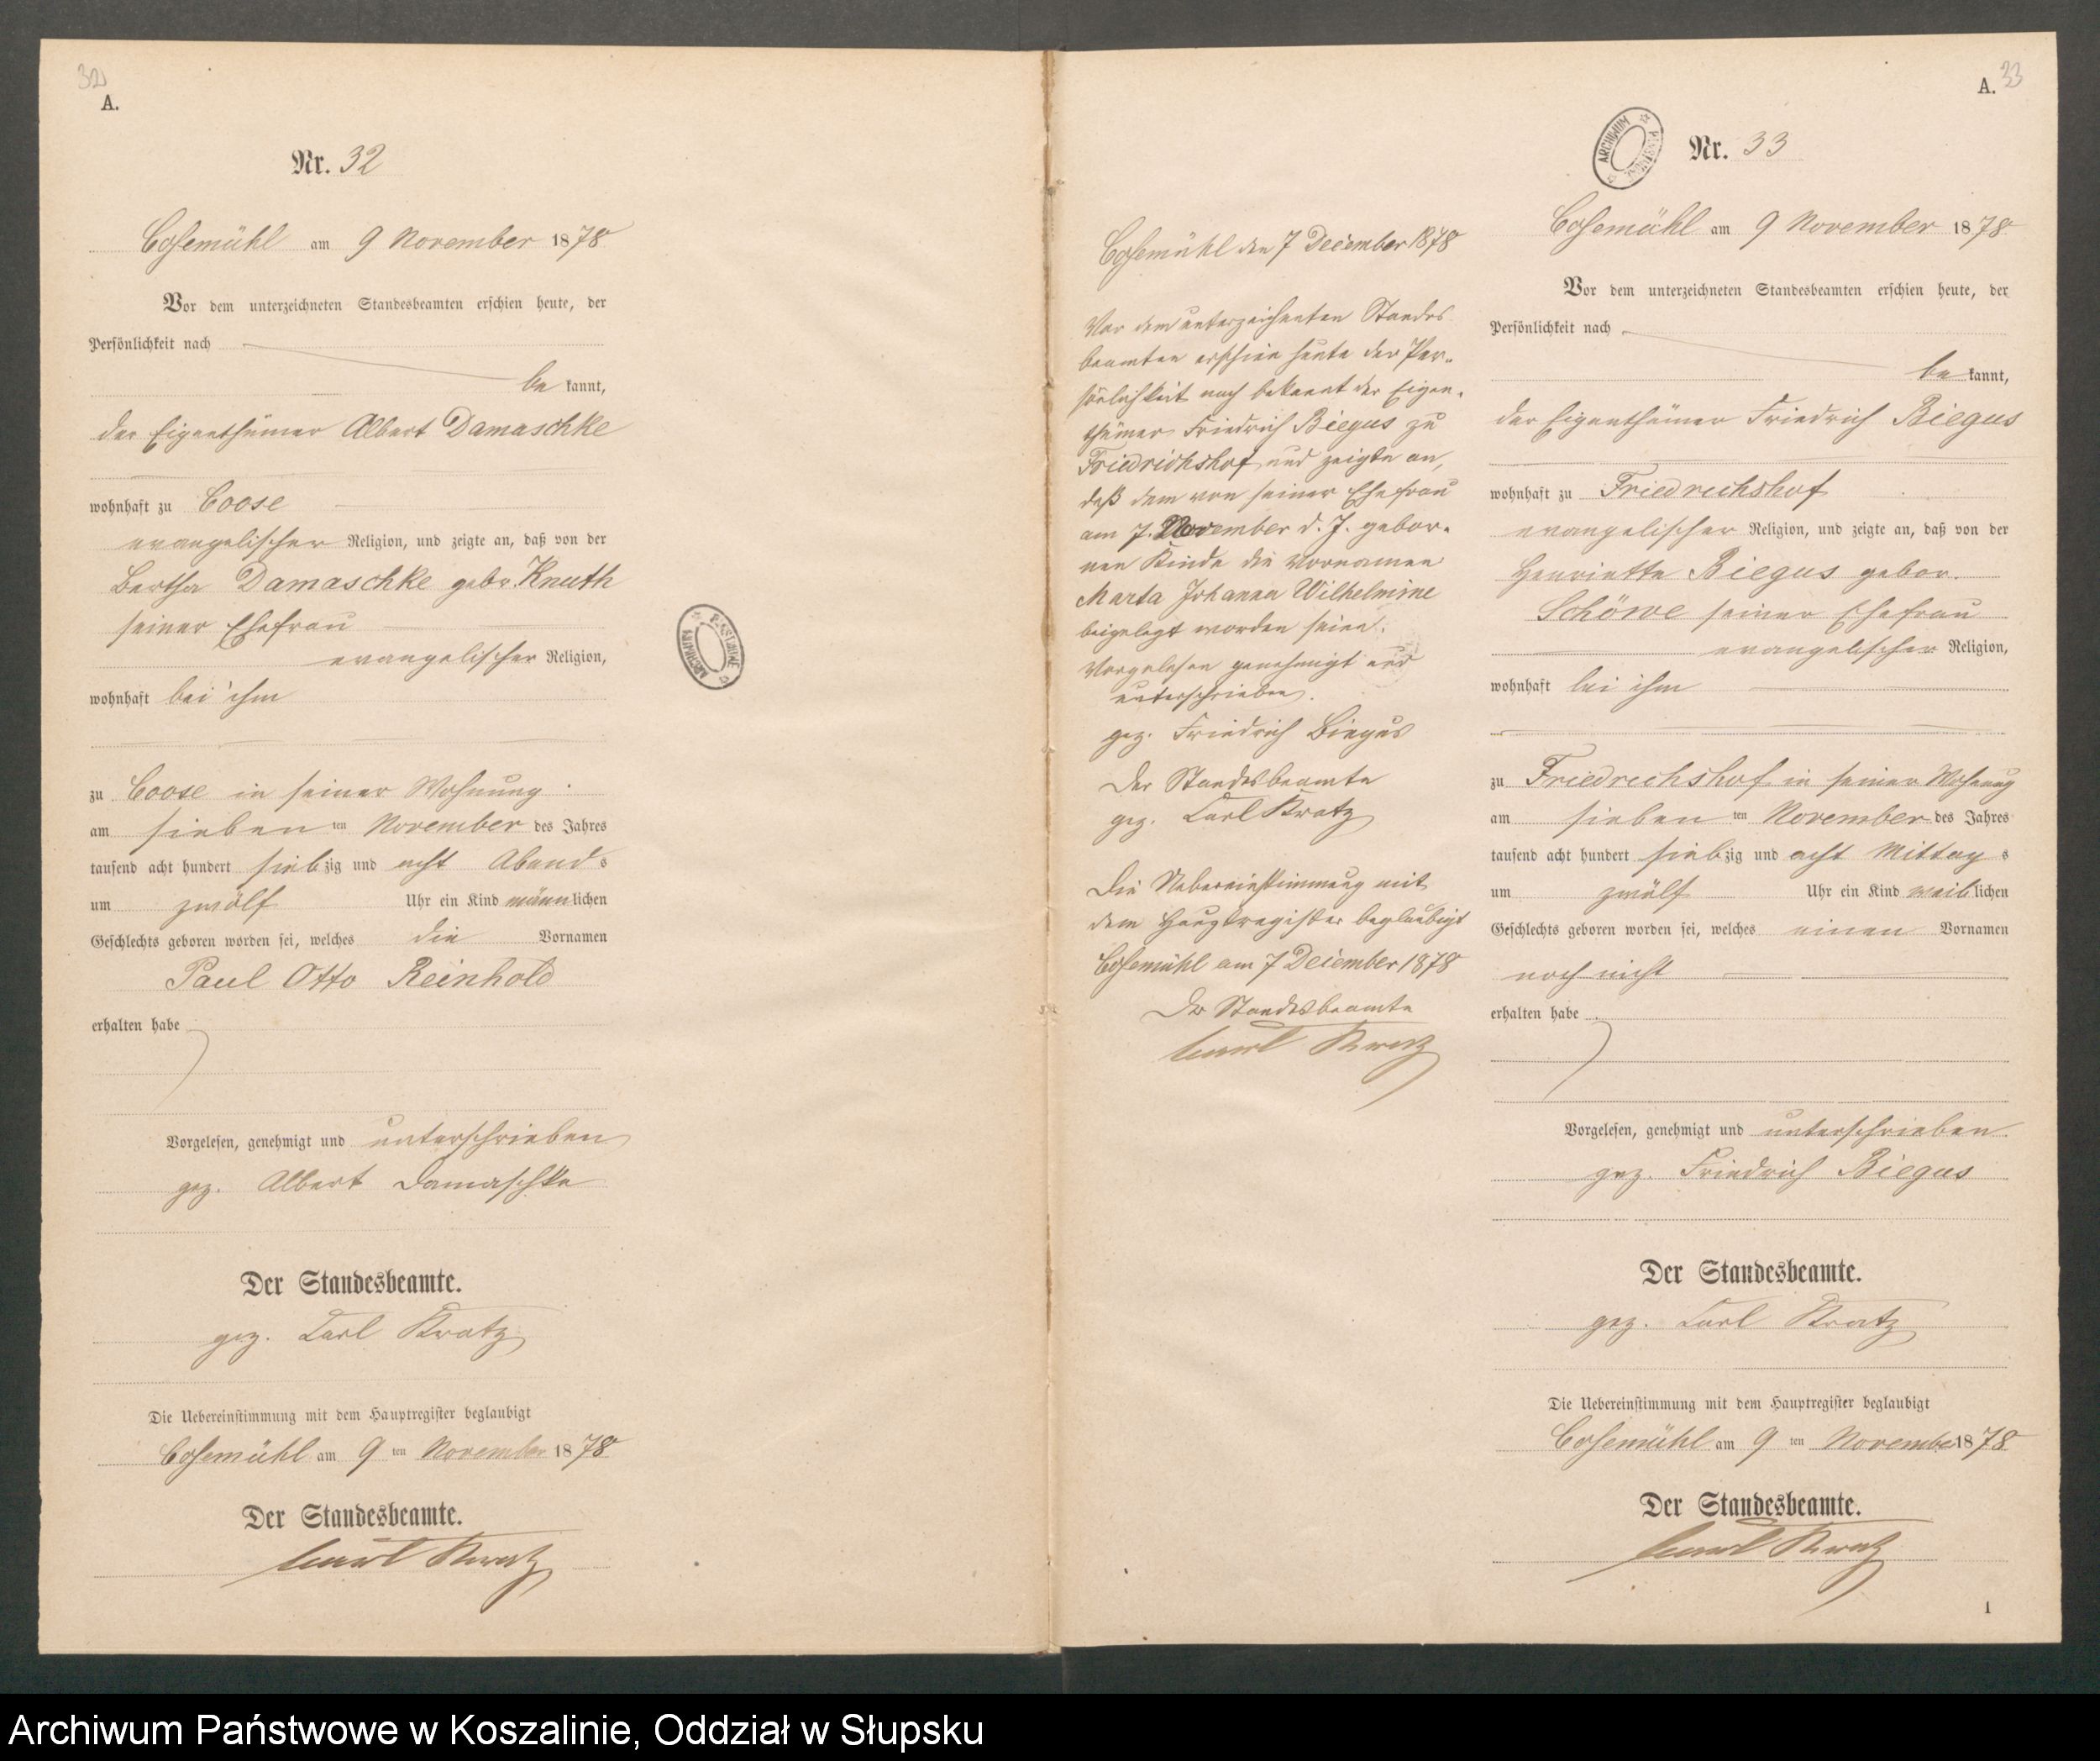 32
A.
Nr. 32
Cosemühl am 9 November 1878
Vor dem unterzeichneten Standesbeamten erschien heute, der
Persönlichkeit nach
be kannt,
der Eigenthümer Albert Damaschke
wohnhaft zu Coose
evangelischer Religion, und zeigte an, daß von der
Bertha Damaschke gebr. Knuth
seiner Ehefrau
evangelischer Religion,
wohnhaft bei ihm
zu Coose in seiner Wohnung
am sieben ten November des Jahres
tausend acht hundert siebzig und acht Abends
um zwölf Uhr ein Kind männlichen
Geschlechts geboren worden sei, welches die Vornamen
Paul Otto Reinhold
erhalten habe
Vorgelesen, genehmigt und unterschrieben
gez. Albert Damaschke
Der Standesbeamte.
gez. Carl Kratz
Die Uebereinstimmung mit dem Hauptregister beglaubigt
Cosemühl am 9 ten November 1878
Der Standesbeamte.
Carl Kratz
ARCHIWUM PAŃSTWOWE
Cosemühl den 7 December 1878
Vor dem unterzeichneten Standes
beamten erschien heute der Per-
sönlichkeit nach bekannt der Eigen-
thümer Friedrich Biegus zu
Friedrichshof und zeigte an,
daß dem von seiner Ehefrau
am 7. November d. J. gebor-
nen Kinde die Vornamen
Marta Johanna Wilhelmine
beigelegt worden seien.
Vorgelesen genehmigt und
unterschrieben.
gez. Friedrich Biegus
Der Standesbeamte
gez. Carl Kratz
Die Uebereinstimmung mit
dem Hauptregister beglaubigt
Cosemühl am 7 December 1878
Der Standesbeamte
Carl Kratz
A. 33
ARCHIWUM PAŃSTWOWE
Nr. 33
Cosemühl am 9 November 1878
Vor dem unterzeichneten Standesbeamten erschien heute, der
Persönlichkeit nach
be kannt,
der Eigenthümer Friedrich Biegus
wohnhaft zu Friedrichshof
evangelischer Religion, und zeigte an, daß von der
Henriette Biegus gebor.
Schöwe seiner Ehefrau
evangelischer Religion,
wohnhaft bei ihm
zu Friedrichshof in seiner Wohnung
am sieben ten November des Jahres
tausend acht hundert siebzig und acht Mittags
um zwölf Uhr ein Kind weiblichen
Geschlechts geboren worden sei, welches einen Vornamen
noch nicht
erhalten habe
Vorgelesen, genehmigt und unterschrieben
gez. Friedrich Biegus
Der Standesbeamte.
gez. Carl Kratz
Die Uebereinstimmung mit dem Hauptregister beglaubigt
Cosemühl am 9 ten November 1878
Der Standesbeamte.
Carl Kratz
1
Archiwum Państwowe w Koszalinie, Oddział w Słupsku